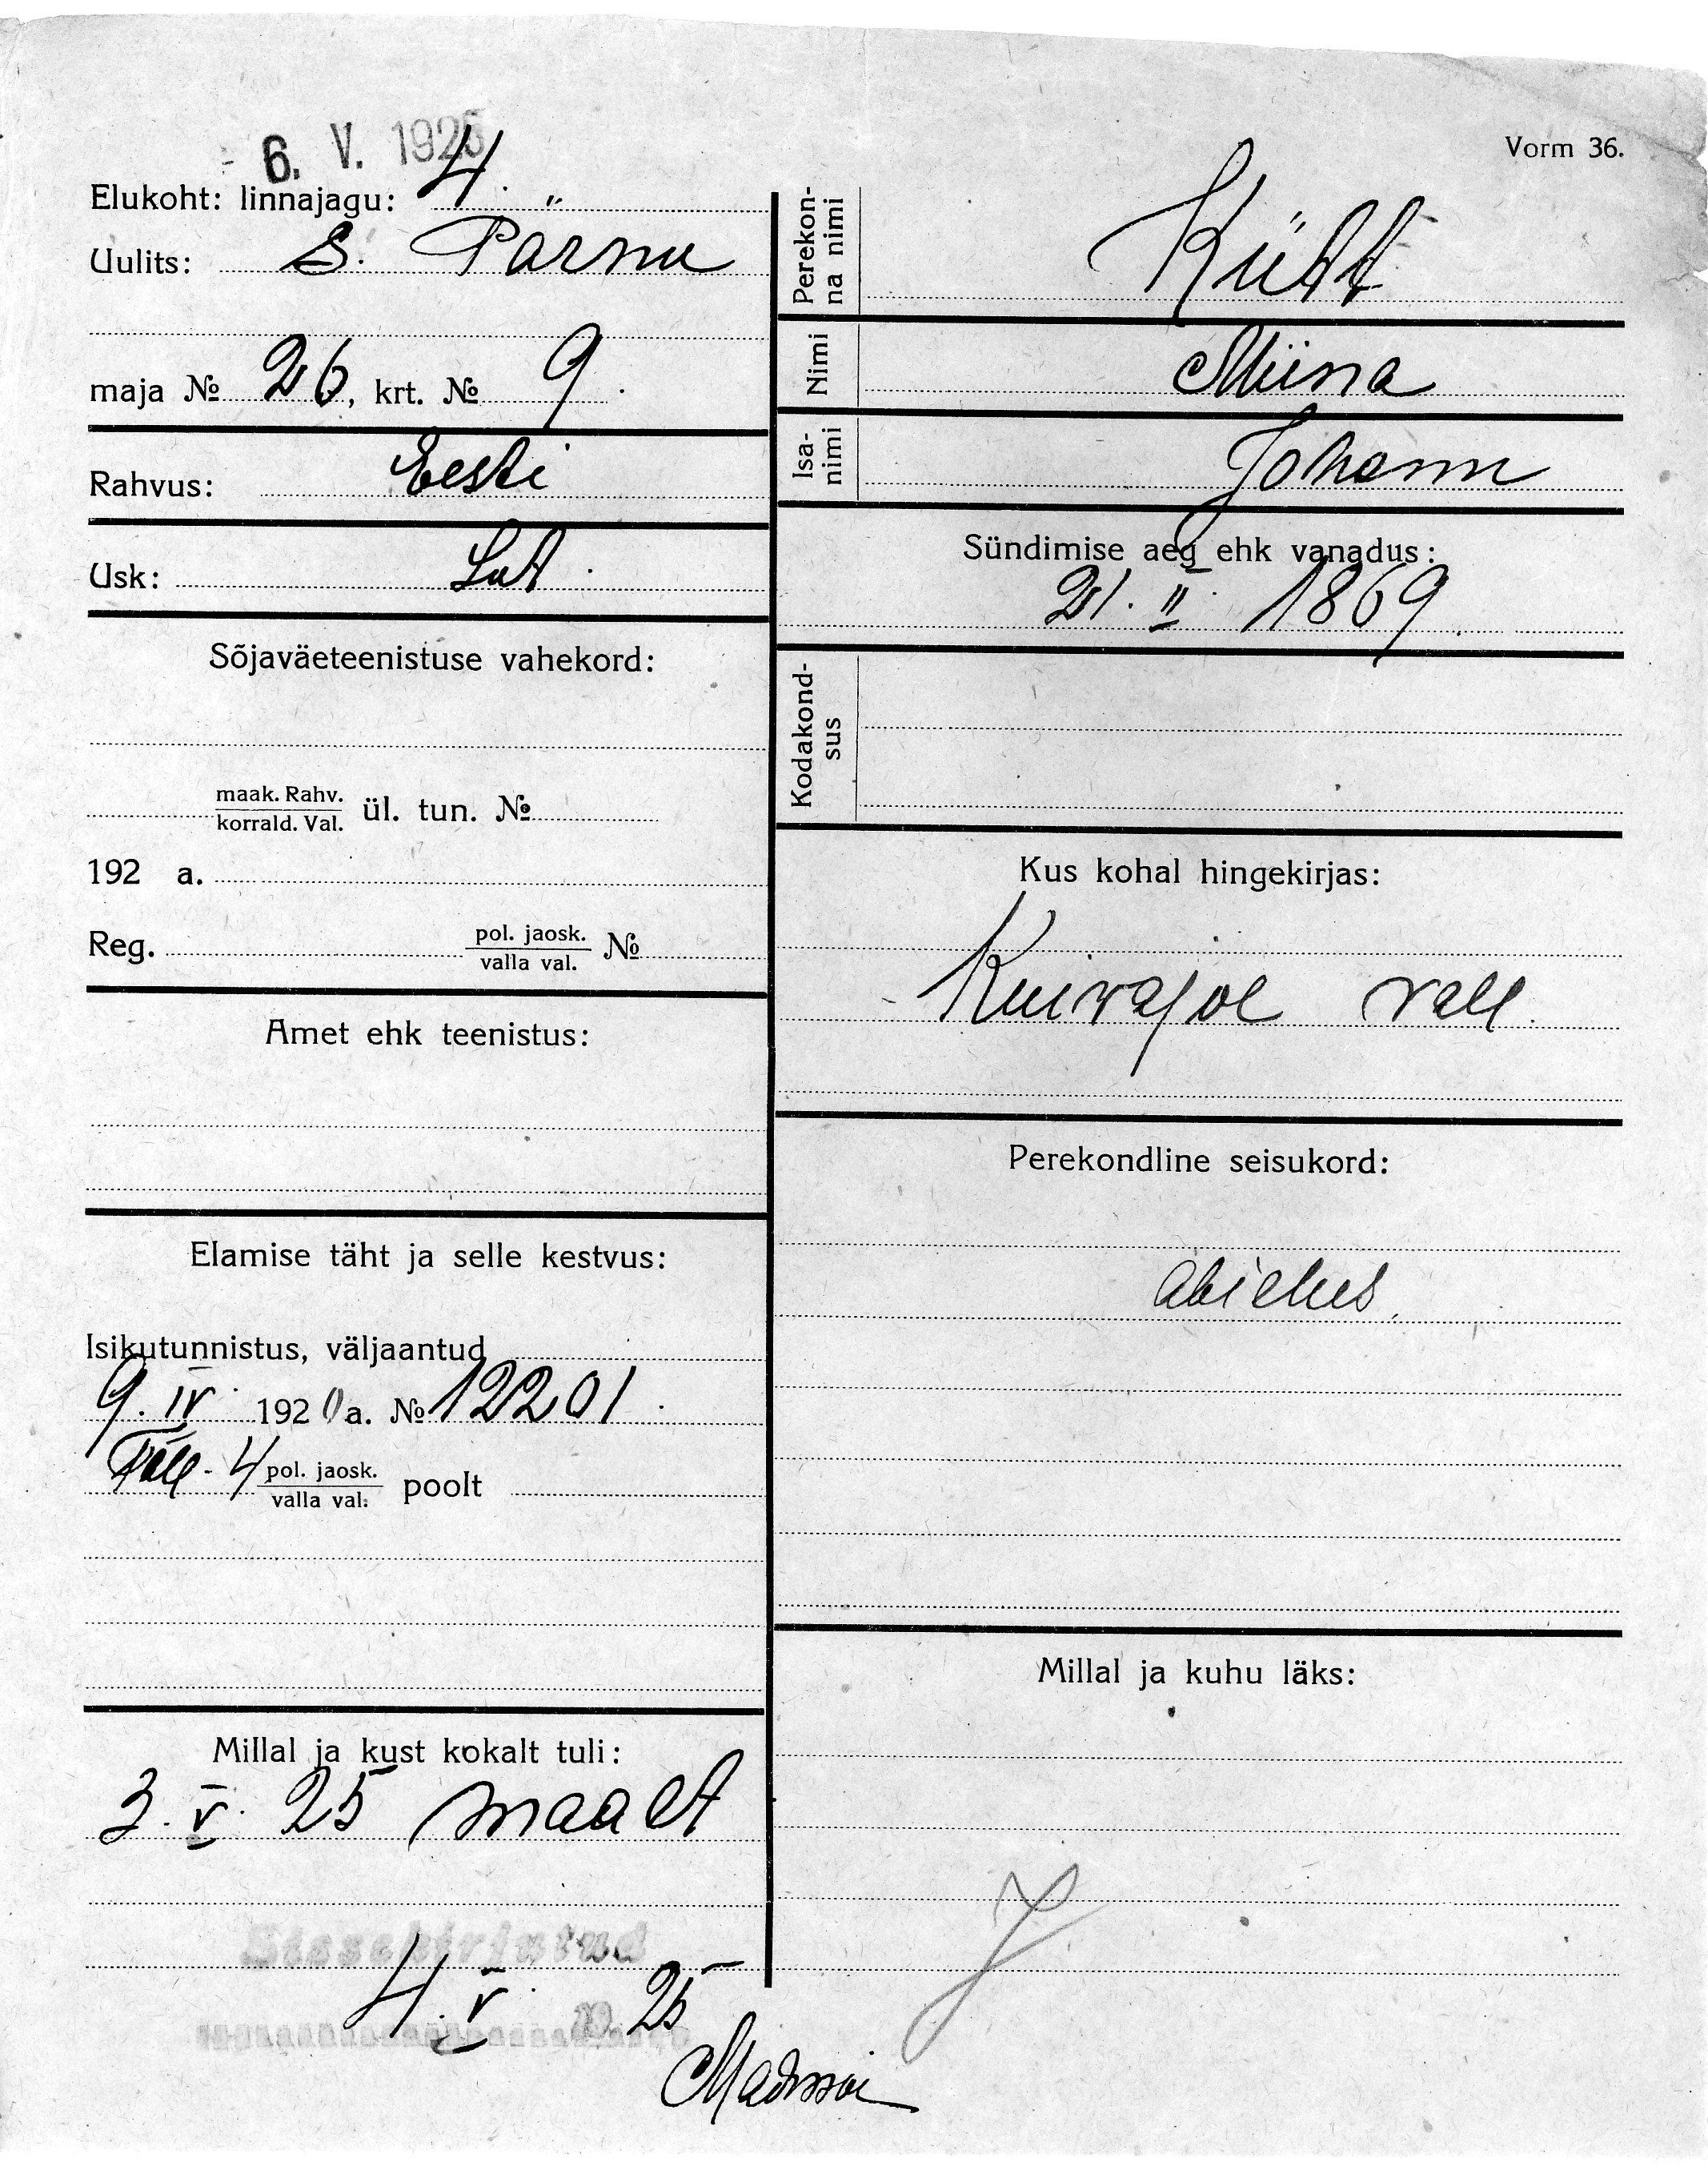 6. V. 1925
Vorm 36.
Elukoht: linnajagu: 4.
Uulits: S. Pärnu
maja № 26, krt. № 9.
Rahvus: Eesti
Usk: Lut.
Sõjaväeteenistuse vahekord:
maak. Rahv.
korrald. Val. ül. tun. №
192 a.
Reg. pol. jaosk.
valla val. №
Amet ehk teenistus:
Elamise täht ja selle kestvus:
Isikutunnistus, väljaantud
9. IV. 1920 a. № 12201.
Tall. 4 pol. jaosk.
valla val. poolt
Millal ja kust kokalt tuli:
3. V. 25 maalt
Sissekirjutud
4. V. 25
Perekon-
na nimi Kütt
Nimi Miina
Isa-
nimi Johann
Sündimise aeg ehk vanadus:
21. II. 1869.
Kodakond-
sus
Kus kohal hingekirjas:
Kuivajõe vall.
Perekondline seisukord:
abielus.
Millal ja kuhu läks: